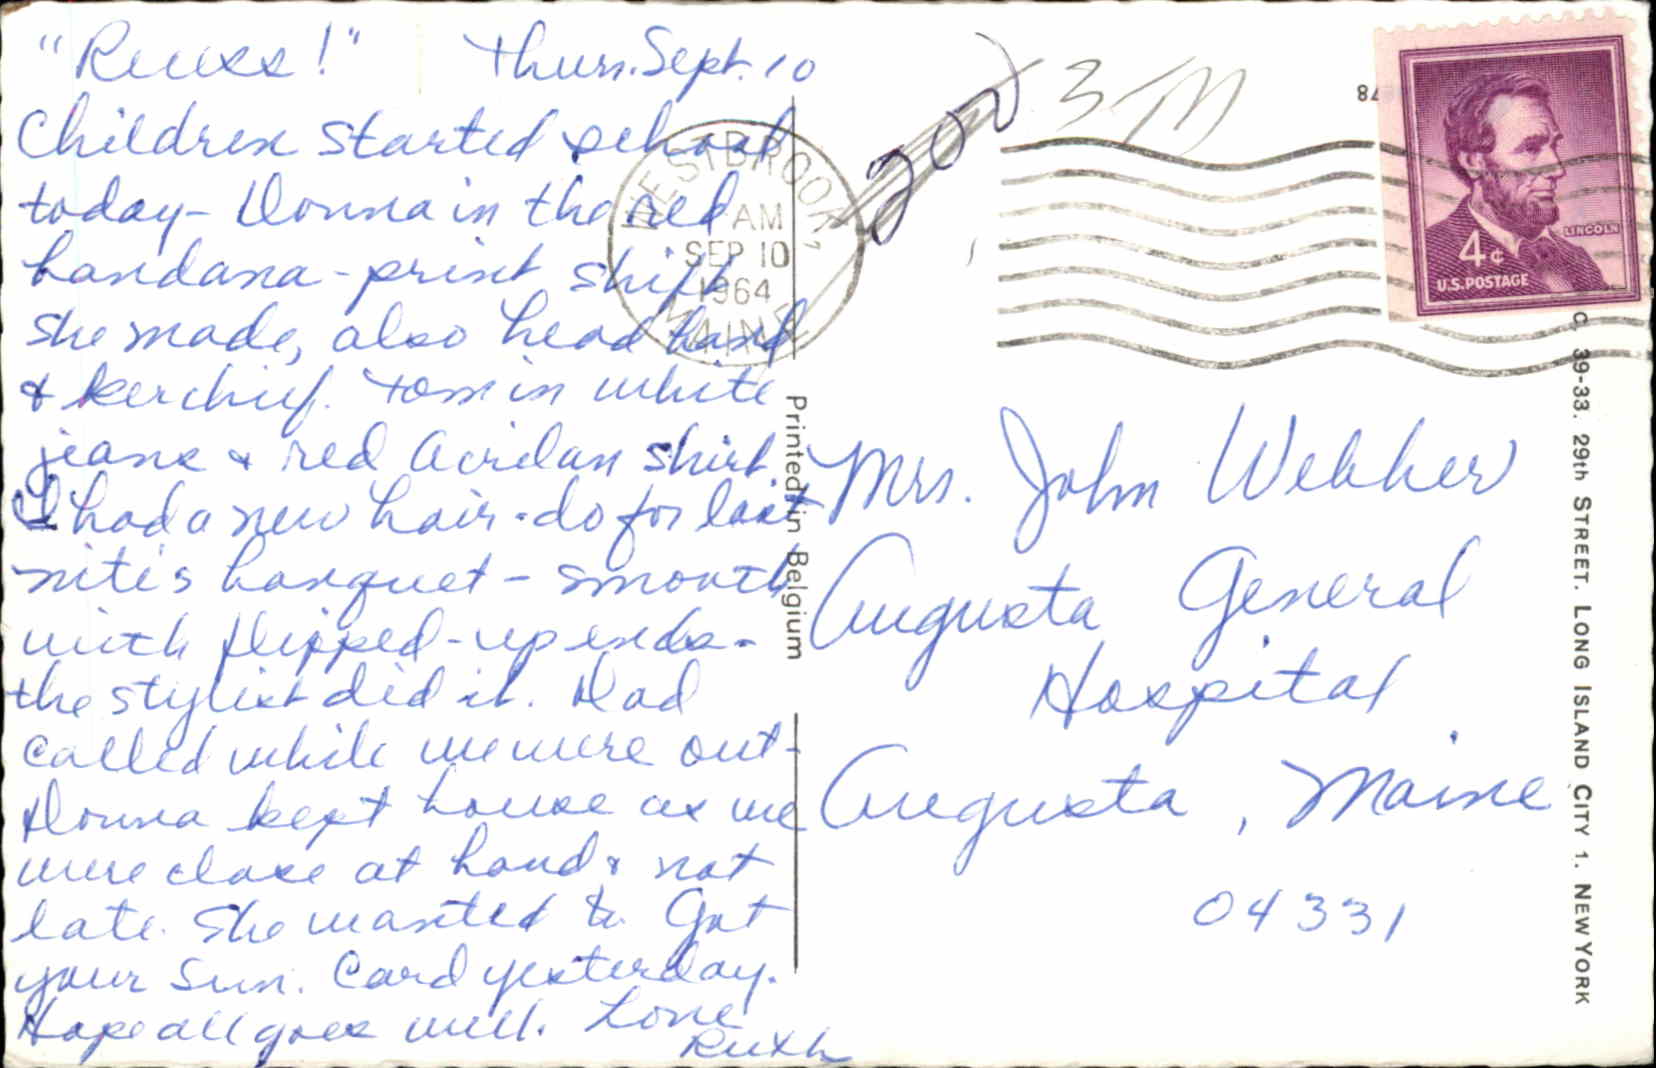 "Ruuss!" Thurs. Sept. 10
Children started school
today - Donna in the red
bandana-print shift
she made, also head band
& kerchief. Tom in white
jeans & red Acrilan shirt
I had a new hair-do for last
nite's banquet - smooth
with flipped-up ends -
the stylist did it. Dad
called while we were out -
Donna kept house as we
were close at hand & not
late. She wanted to. Got
your Sun. Card yesterday.
Hope all goes well. Love
Ruth
WESTBROOK,
AM
SEP 10
1964
MAINE
201
3 M
LINCOLN
4¢
U.S. POSTAGE
Printed in Belgium
Mrs. John Webber
Augusta General
Hospital
Augusta, Maine
04331
C. 39-33. 29th STREET. LONG ISLAND CITY 1. NEW YORK